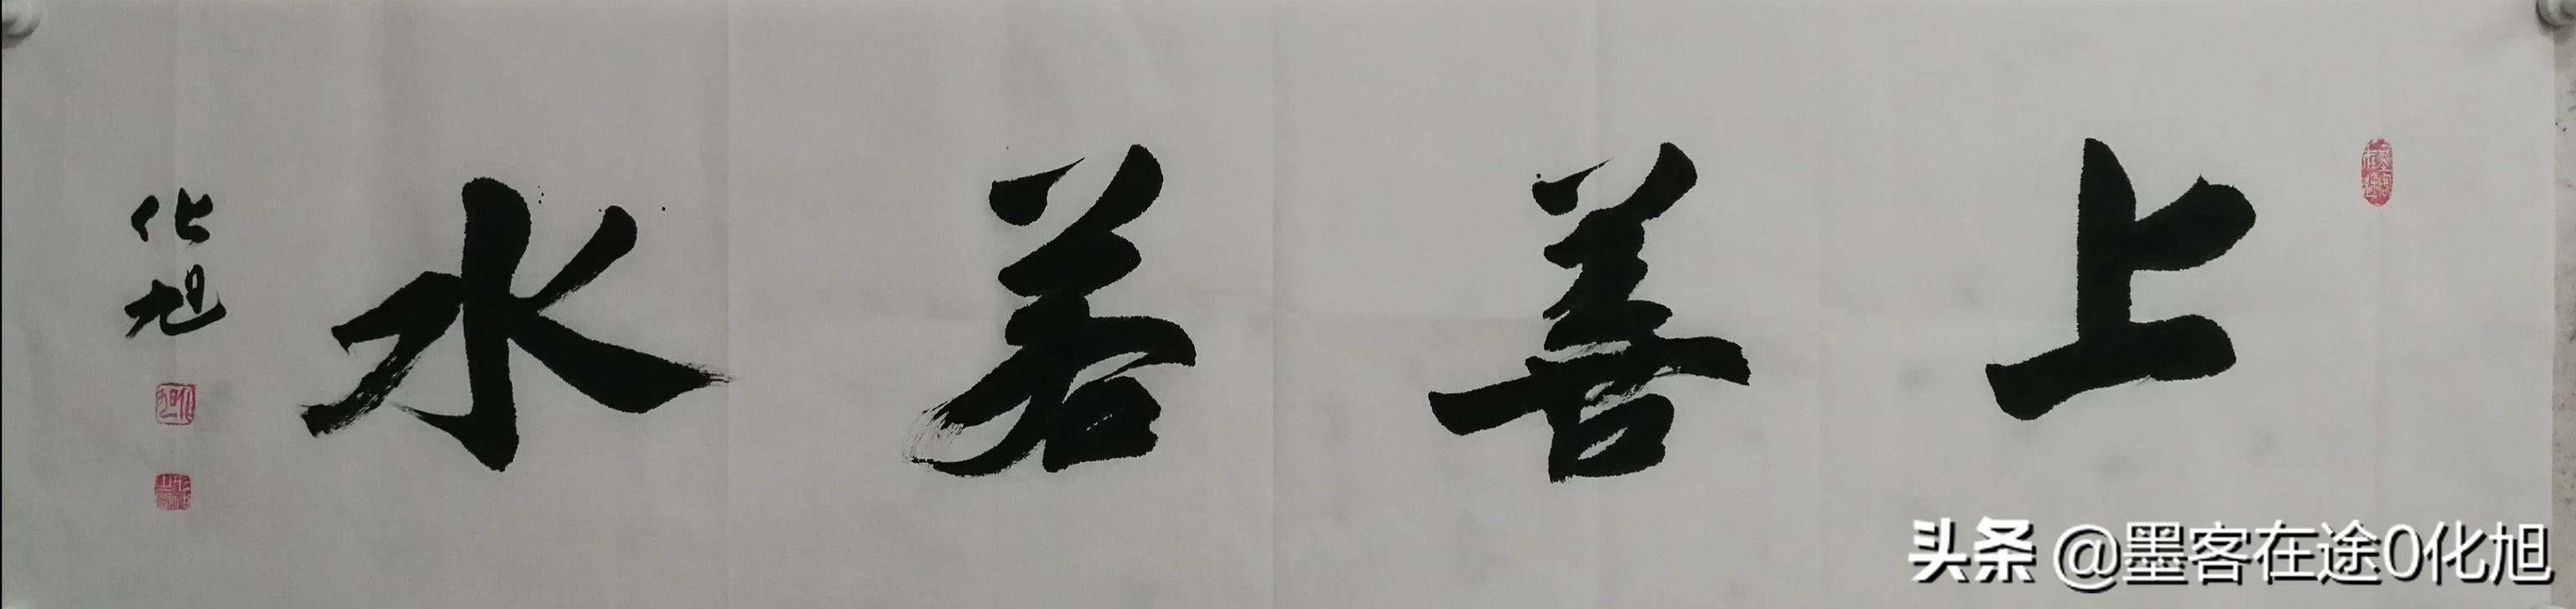 上善若水
化旭
头条 @墨客在途0化旭